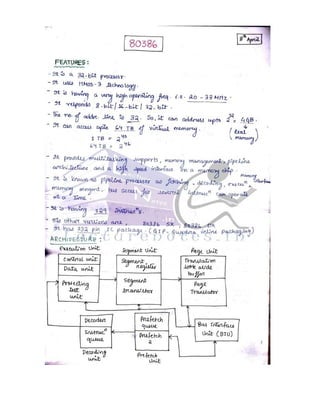 80386
8th April
FEATURES:
- It is a 32-bit processor.
- It uses HMOS-3 technology.
- It is having a very high operating freq. i.e. 20-33 MHz.
- It responds 8-bit/16-bit/32-bit.
- The no of addr. line is 32. So, it can address upto 2^32 = 4GB.
- It can access upto 64 TB of virtual memory.
1 TB = 2^40
64 TB = 2^46
- It provides multitasking supports, memory management, pipeline
architecture and a high speed interface on a memory chip
- It is known as pipeline processor as fetching, decoding,
memory mngmnt, bus access for several can operate
at a time.
- It is having 129
- The other versions are, 80386 SX, 80386 DX
- It has 132 pin IC package.
ARCHITECTURE:
Execution Unit
Segment Unit
Page Unit
Control unit
Data unit
Protecting
test
unit
Segment
register
Segment
translator
Translation
look aside
buffer
Page
Translator
Decoder
Instrucn
queue
Decoding
unit
Prefetch
queue
Prefetch
2
Prefetch
Unit
Bus Interface
Unit (BIU)